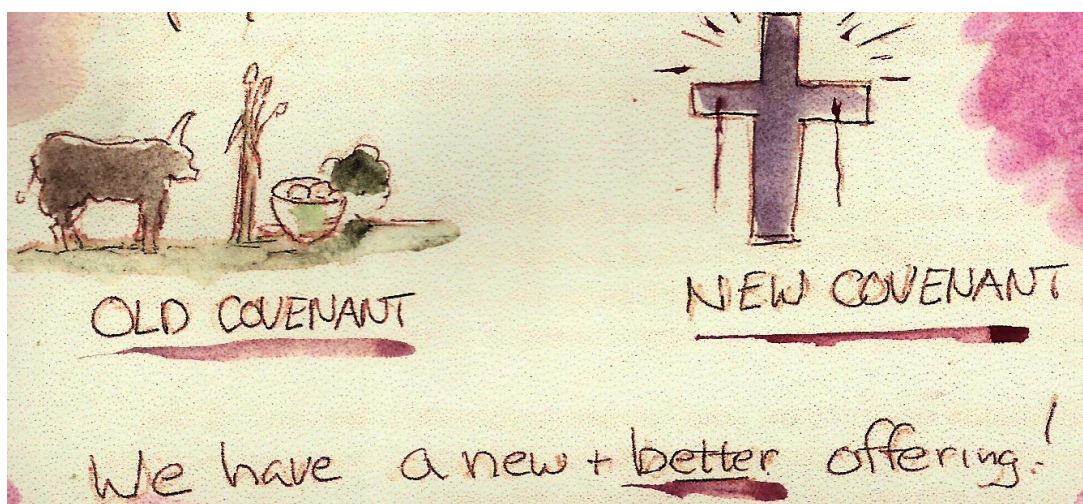 OLD COVENANT
NEW COVENANT
We have a new + better offering!